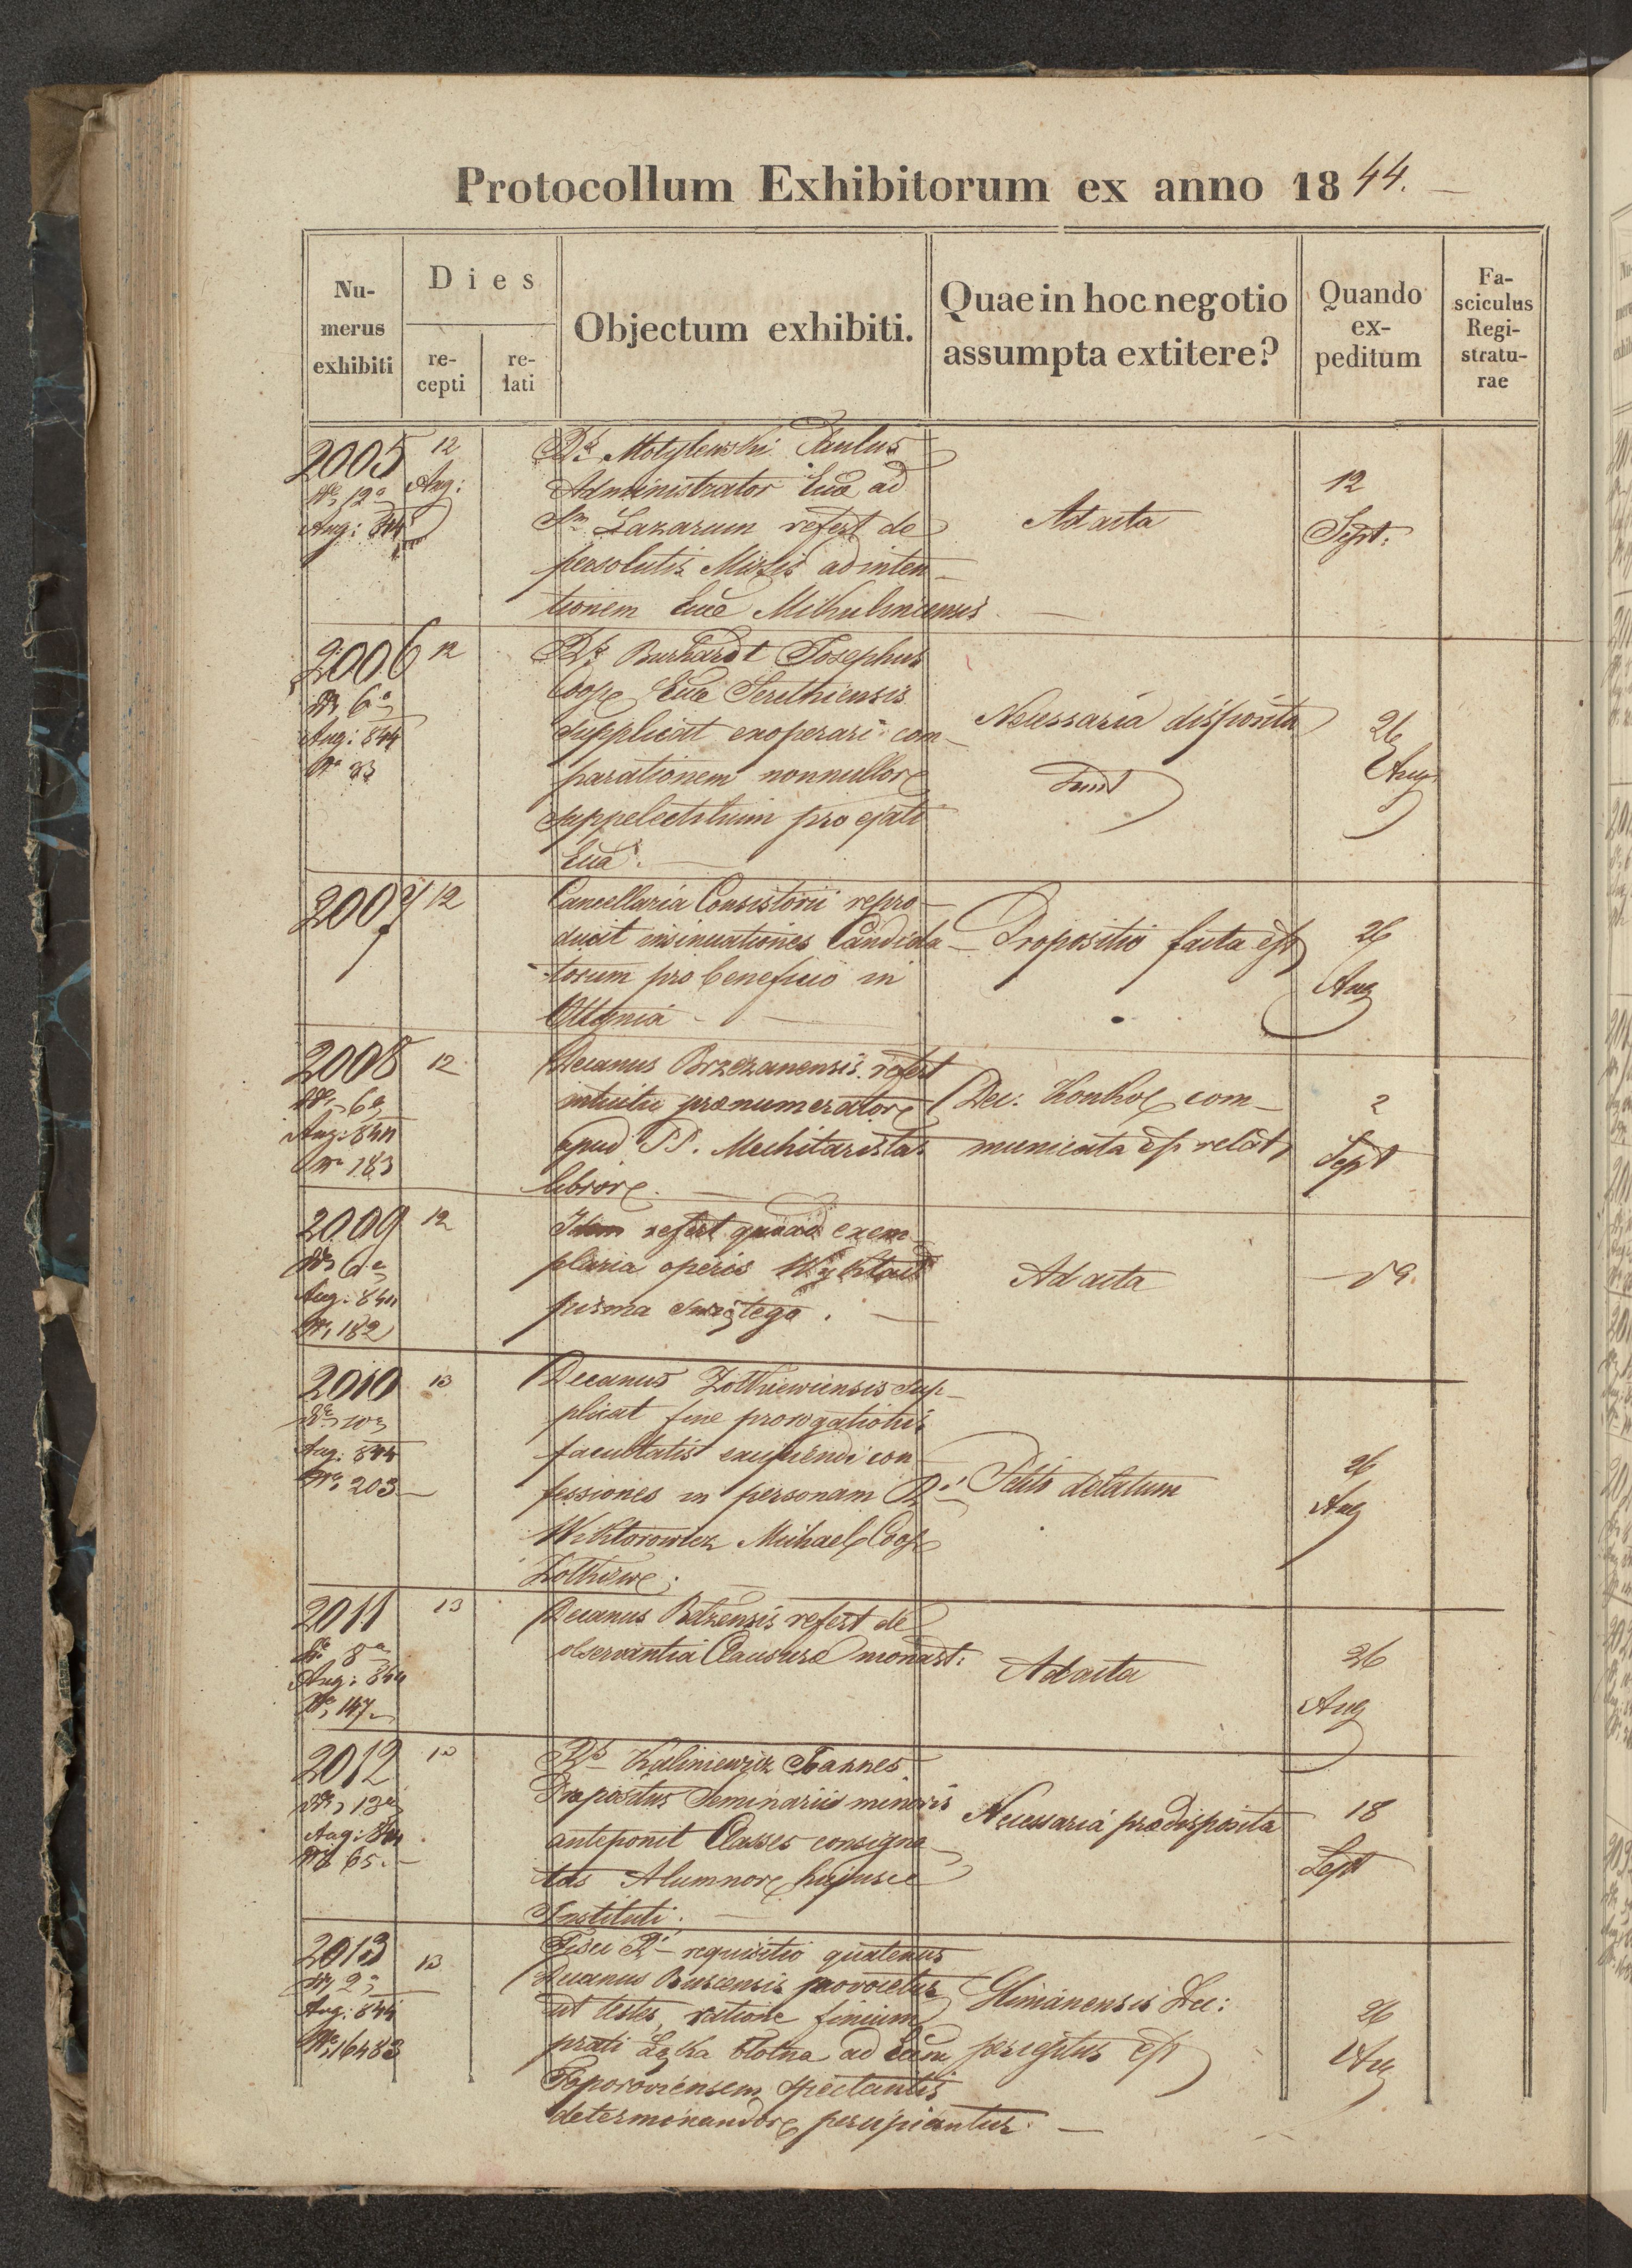 Protocollum Exhibitorum ex anno 1844.
Nu-
merus
exhibiti
Dies
re-
cepti
re-
lati
Objectum exhibiti.
Quae in hoc negotio
assumpta extitere?
Quando
ex-
peditum
Fa-
sciculus
Regi-
stratu-
rae
2005
12
Aug:
Aug: 844
Motylewski Paulus
Administrator Ecca ad
Lazarum refert de
persolutis Missis ad inten-
tionem Ecca Mikulincensis
Ad acta
12
Sept:
2006
12
Aug: 844
Burhardt Josephus
Coop Ecca Serethiensis
supplicat exoperari com-
parationem nonnullor
suppelectilium pro ejati
Ecca.
Necessaria disposita
sunt
26
Aug
2007
12
Cancellaria Consistorii repro-
ducit insinuationes Candida-
torum pro beneficio in
Ottynia
Propositio facta est
26
Aug
2008
12
Aug: 844
183
Decanus Brzezanensis refert
intuitu pranumerator
apud PP. Mechitaristas
libror.
Dec. com-
municata est relat
2
Sept
2009
12
Aug: 844
182
Idem refert quoad exem-
plaria operis Wykład
pisma świętego.
Ad acta
2010
13
Aug: 844
203
Decanus Zolkiewiensis sup-
plicat fine prorogationis
facultatis excipiendi con
fessiones in personam
Wiktorowicz Michael Coop
Zolkiew.
Petito delatum
26
Aug
2011
13
Aug: 844
147
Decanus Belzensis refert de
observantia Clausura monast:
Ad acta
26
Aug
2012
13
Aug: 844
65.
Kaliniewicz Joannes
Propositus Seminarii minoris
anteponit Classes consigna-
tas Alumnor hujusce
Instituti.
Necessaria pradisposita
18
Sept
2013
13
Aug: 844
16483
Fisci requisitio quatenus
Decanus Buscensis provocetur
ut testes, ratione finium
prati Łąka błotna ad Eccam
Toporoviensem spectantis
determinandor percipiantur.
Glinianensis Dec:
perceptus est
26
Aug